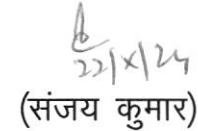 22/X/24
(संजय कुमार)